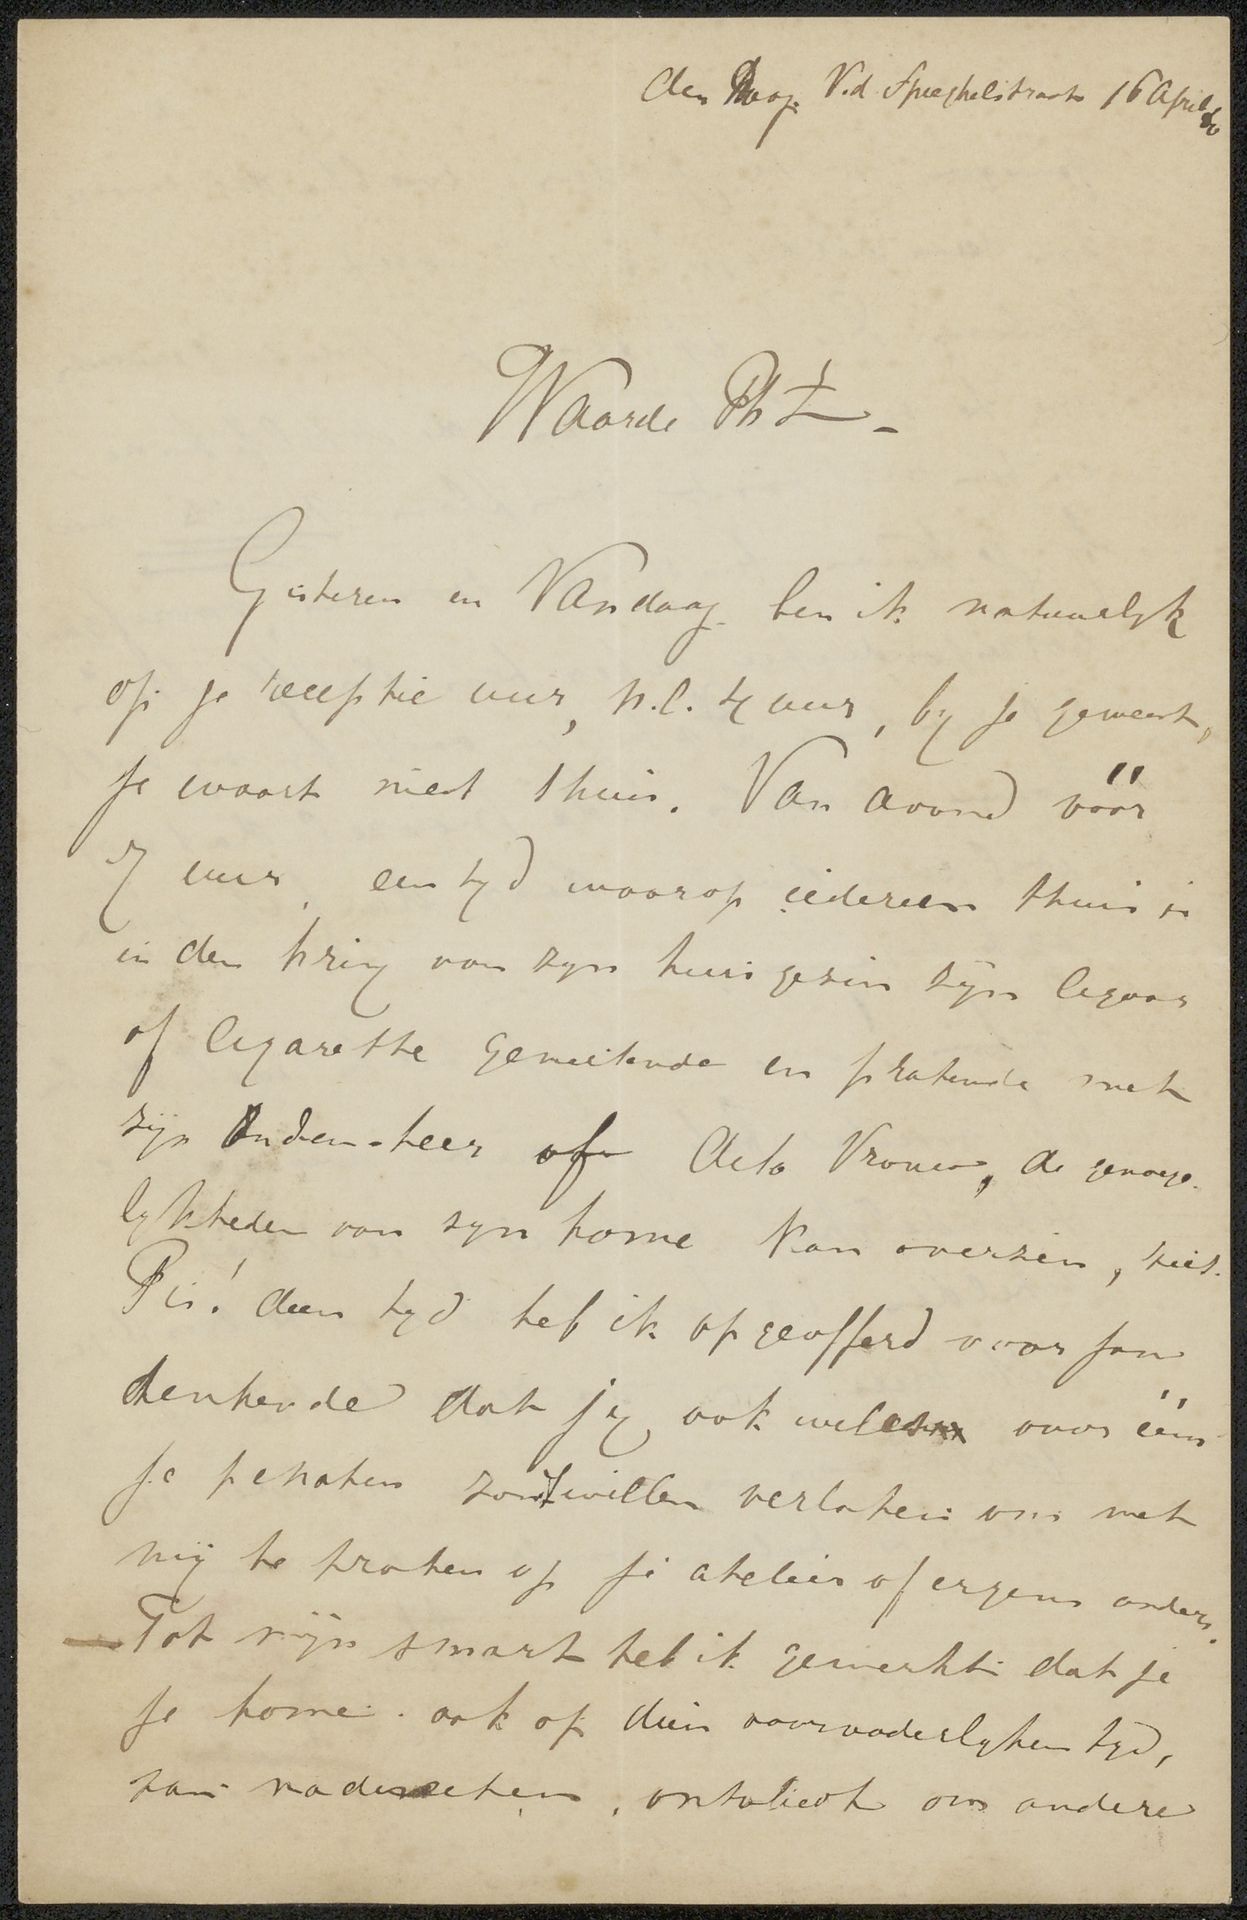 den Haag. V.d. Spieghelstraat 16 April
Waarde Ph Z -
Gisteren en Vandaag ben ik natuurlyk
op je receptie uur, n.l. 4 uur, by je geweest,
je waart niet thuis. Van avond vóór
7 uur, een tyd waarop iedereen thuis is
in den kring van zyn huisgezin zijn cigaar
of cigarette genietende en pratende met
zijn heer of Vrouw, de genoege-
lykheden van zyn home kan overzien,
deen tyd heb ik opgeofferd voor jou
denkende dat jy ook wel voor één
je penaten zoudt willen verlaten om met
mij te praten op je atelier of ergens anders.
Tot mijn smart heb ik gemerkt dat je
je home ook op dien voorvaderlyken tyd,
ontvliedt om andere